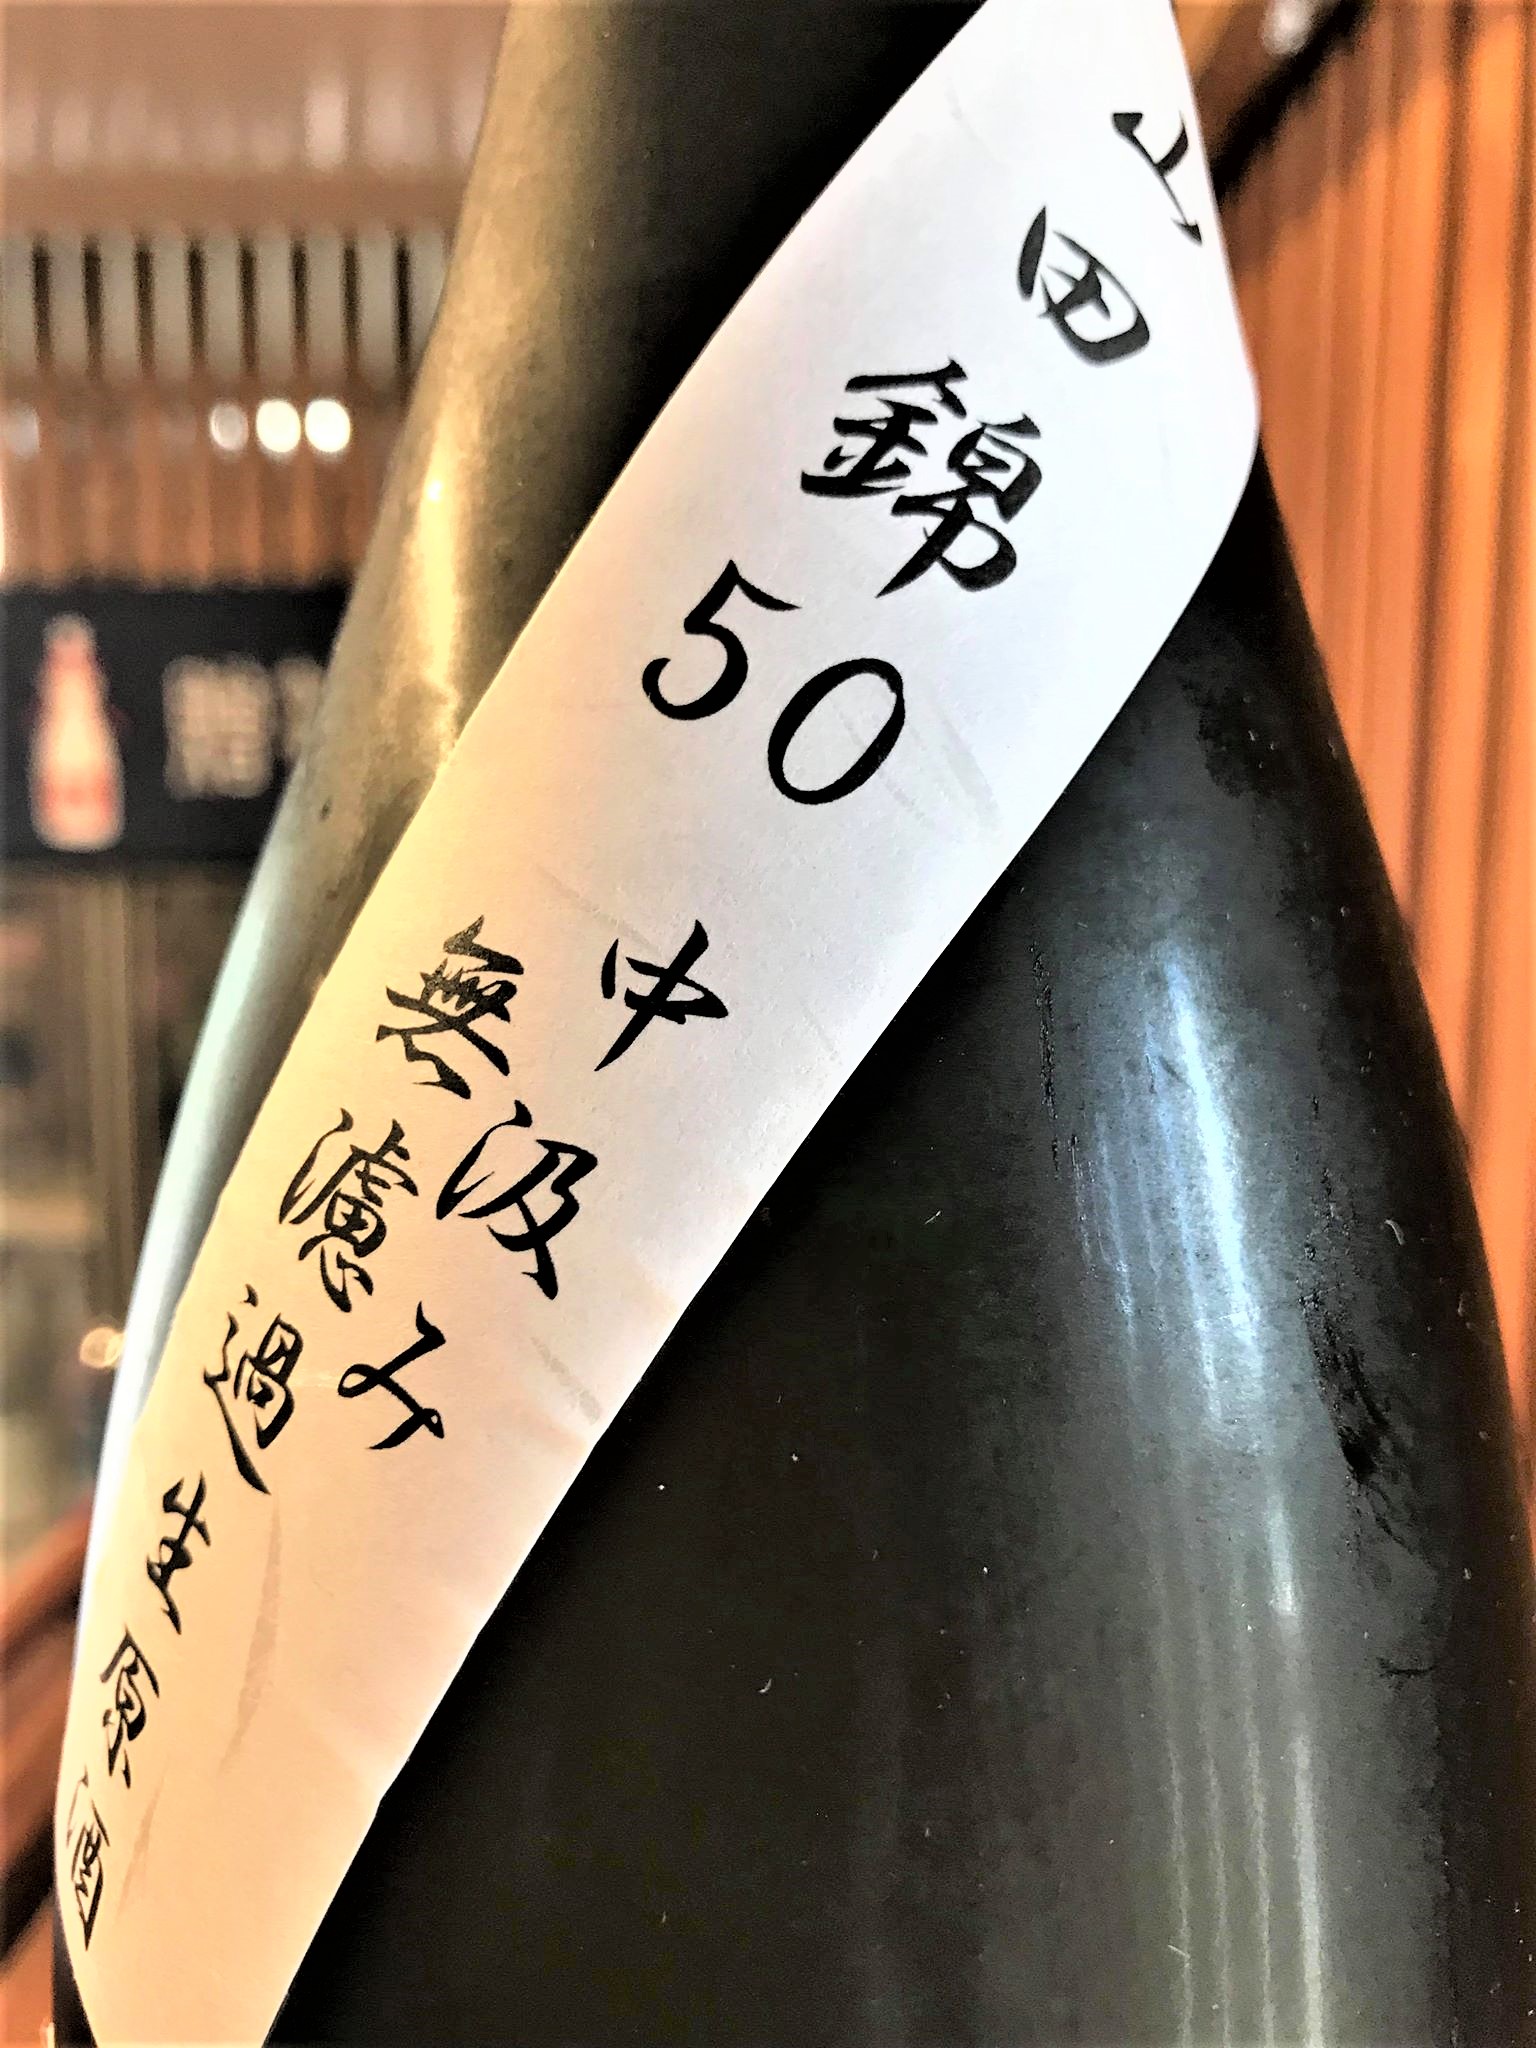 山田錦
50
中汲み
無濾過生原酒